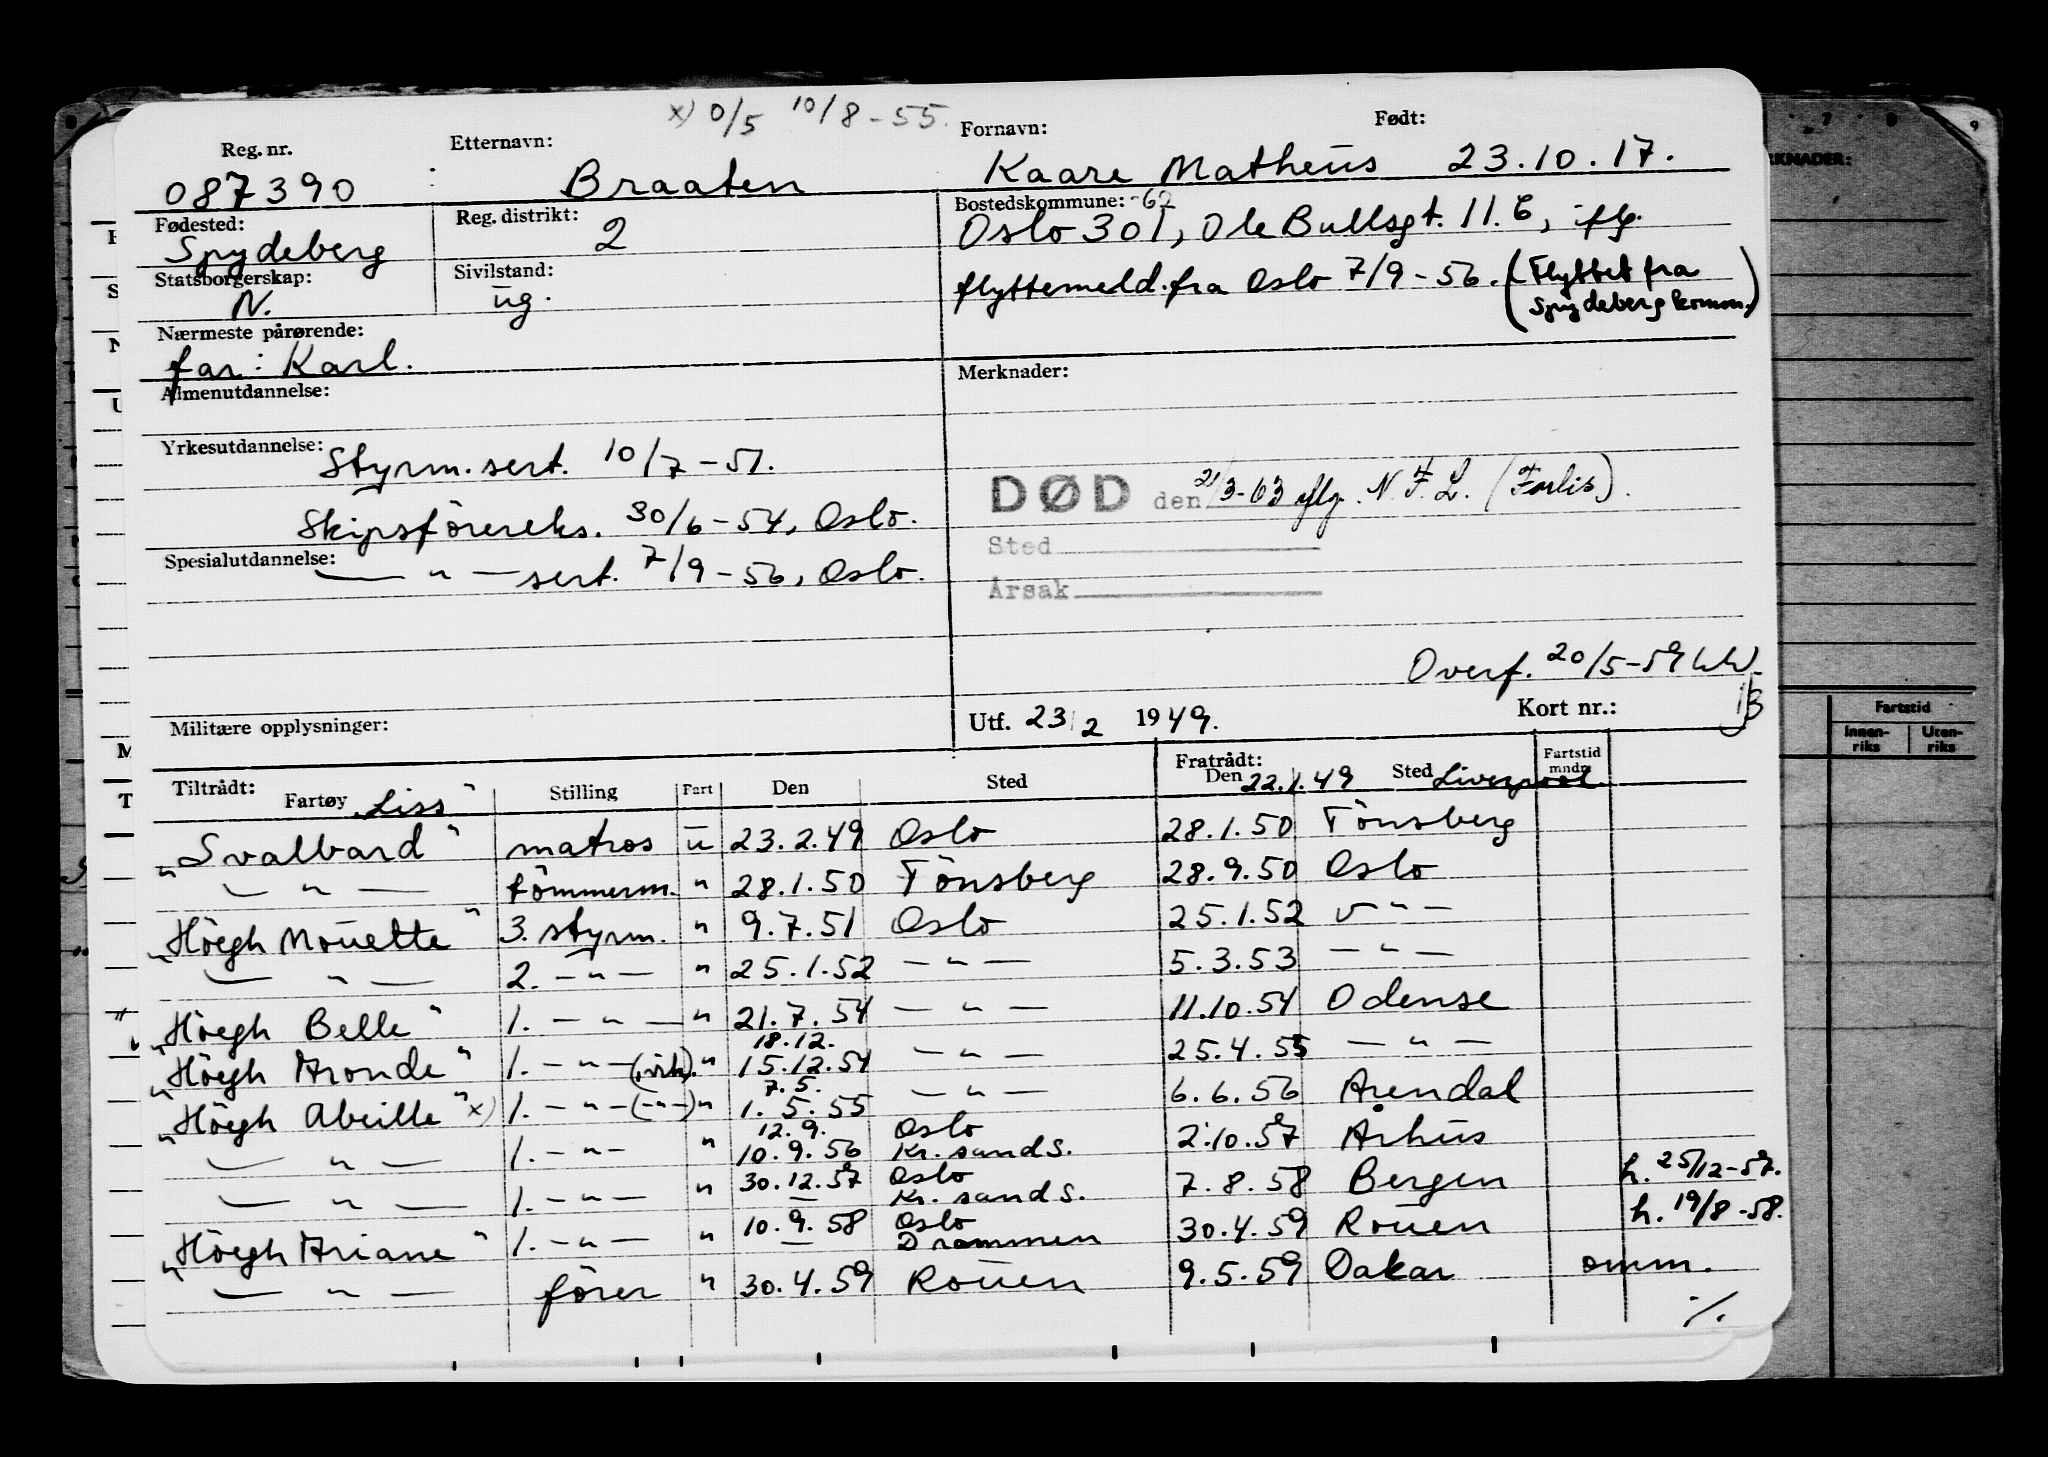 x) 0/5 10/8-55.
Reg. nr. Etternavn: Fornavn: Født:
087390 Braaten Kaare Matheus 23.10.17.
Fødested: Reg. distrikt: Bostedskommune: -62
Spydeberg 2 Oslo 301, Ole Bullsgt. 11.B, iflg.
Statsborgerskap: Sivilstand:
N. ug. flyttemeld. fra Oslo 7/9-56. (Flyttet fra
Spydeberg komm.)
Nærmeste pårørende:
far: Karl.
Almenutdannelse: Merknader:
Yrkesutdannelse: Styrm. sert. 10/7-51.
DØD den 21/3-63 iflg. N.F.L. (Forlis).
Skipsförereks. 30/6-54, Oslo.
Sted
Spesialutdannelse: — " — sert. 7/9-56, Oslo.
Årsak
Overf. 20/5-59
Militære opplysninger: Utf. 23/2 1949. Kort nr.: 1/3
Tiltrådt: Fratrådt: Fartstid
Fartøy Stilling Fart Den Sted Den Sted mndr.
"Liss" 22.1.49 Liverpool
"Svalbard" matros u 23.2.49 Oslo 28.1.50 Tönsberg
— " — tömmerm. " 28.1.50 Tönsberg 28.9.50 Oslo
"Höegh Mouette" 3. styrm. " 9.7.51 Oslo 25.1.52 — " —
— " — 2. — " — " 25.1.52 — " — 5.3.53 — " —
"Höegh Belle" 1. — " — " 21.7.54 — " — 11.10.54 Odense
18.12.
"Höegh Aronde" 1. — " — (virk). " 15.12.54 — " — 25.4.55 — " —
7.5.
"Höegh Abeille" x) 1. — " — (—"—) " 1.5.55 — " — 6.6.56 Arendal
12.9. Oslo
— " — 1. — " — " 10.9.56 Kr.sand S. 2.10.57 Århus
30.12.57 Oslo
— " — 1. — " — " — Kr.sand S. 7.8.58 Bergen h. 25/12-57.
10.9.58 Oslo
"Höegh Ariane" 1. — " — " — Drammen 30.4.59 Rouen h. 19/8-58.
— " — förer " 30.4.59 Rouen 9.5.59 Dakar omm.
./.
KNADER:
7 8 9
Fartstid
Innen-riks Uten-riks